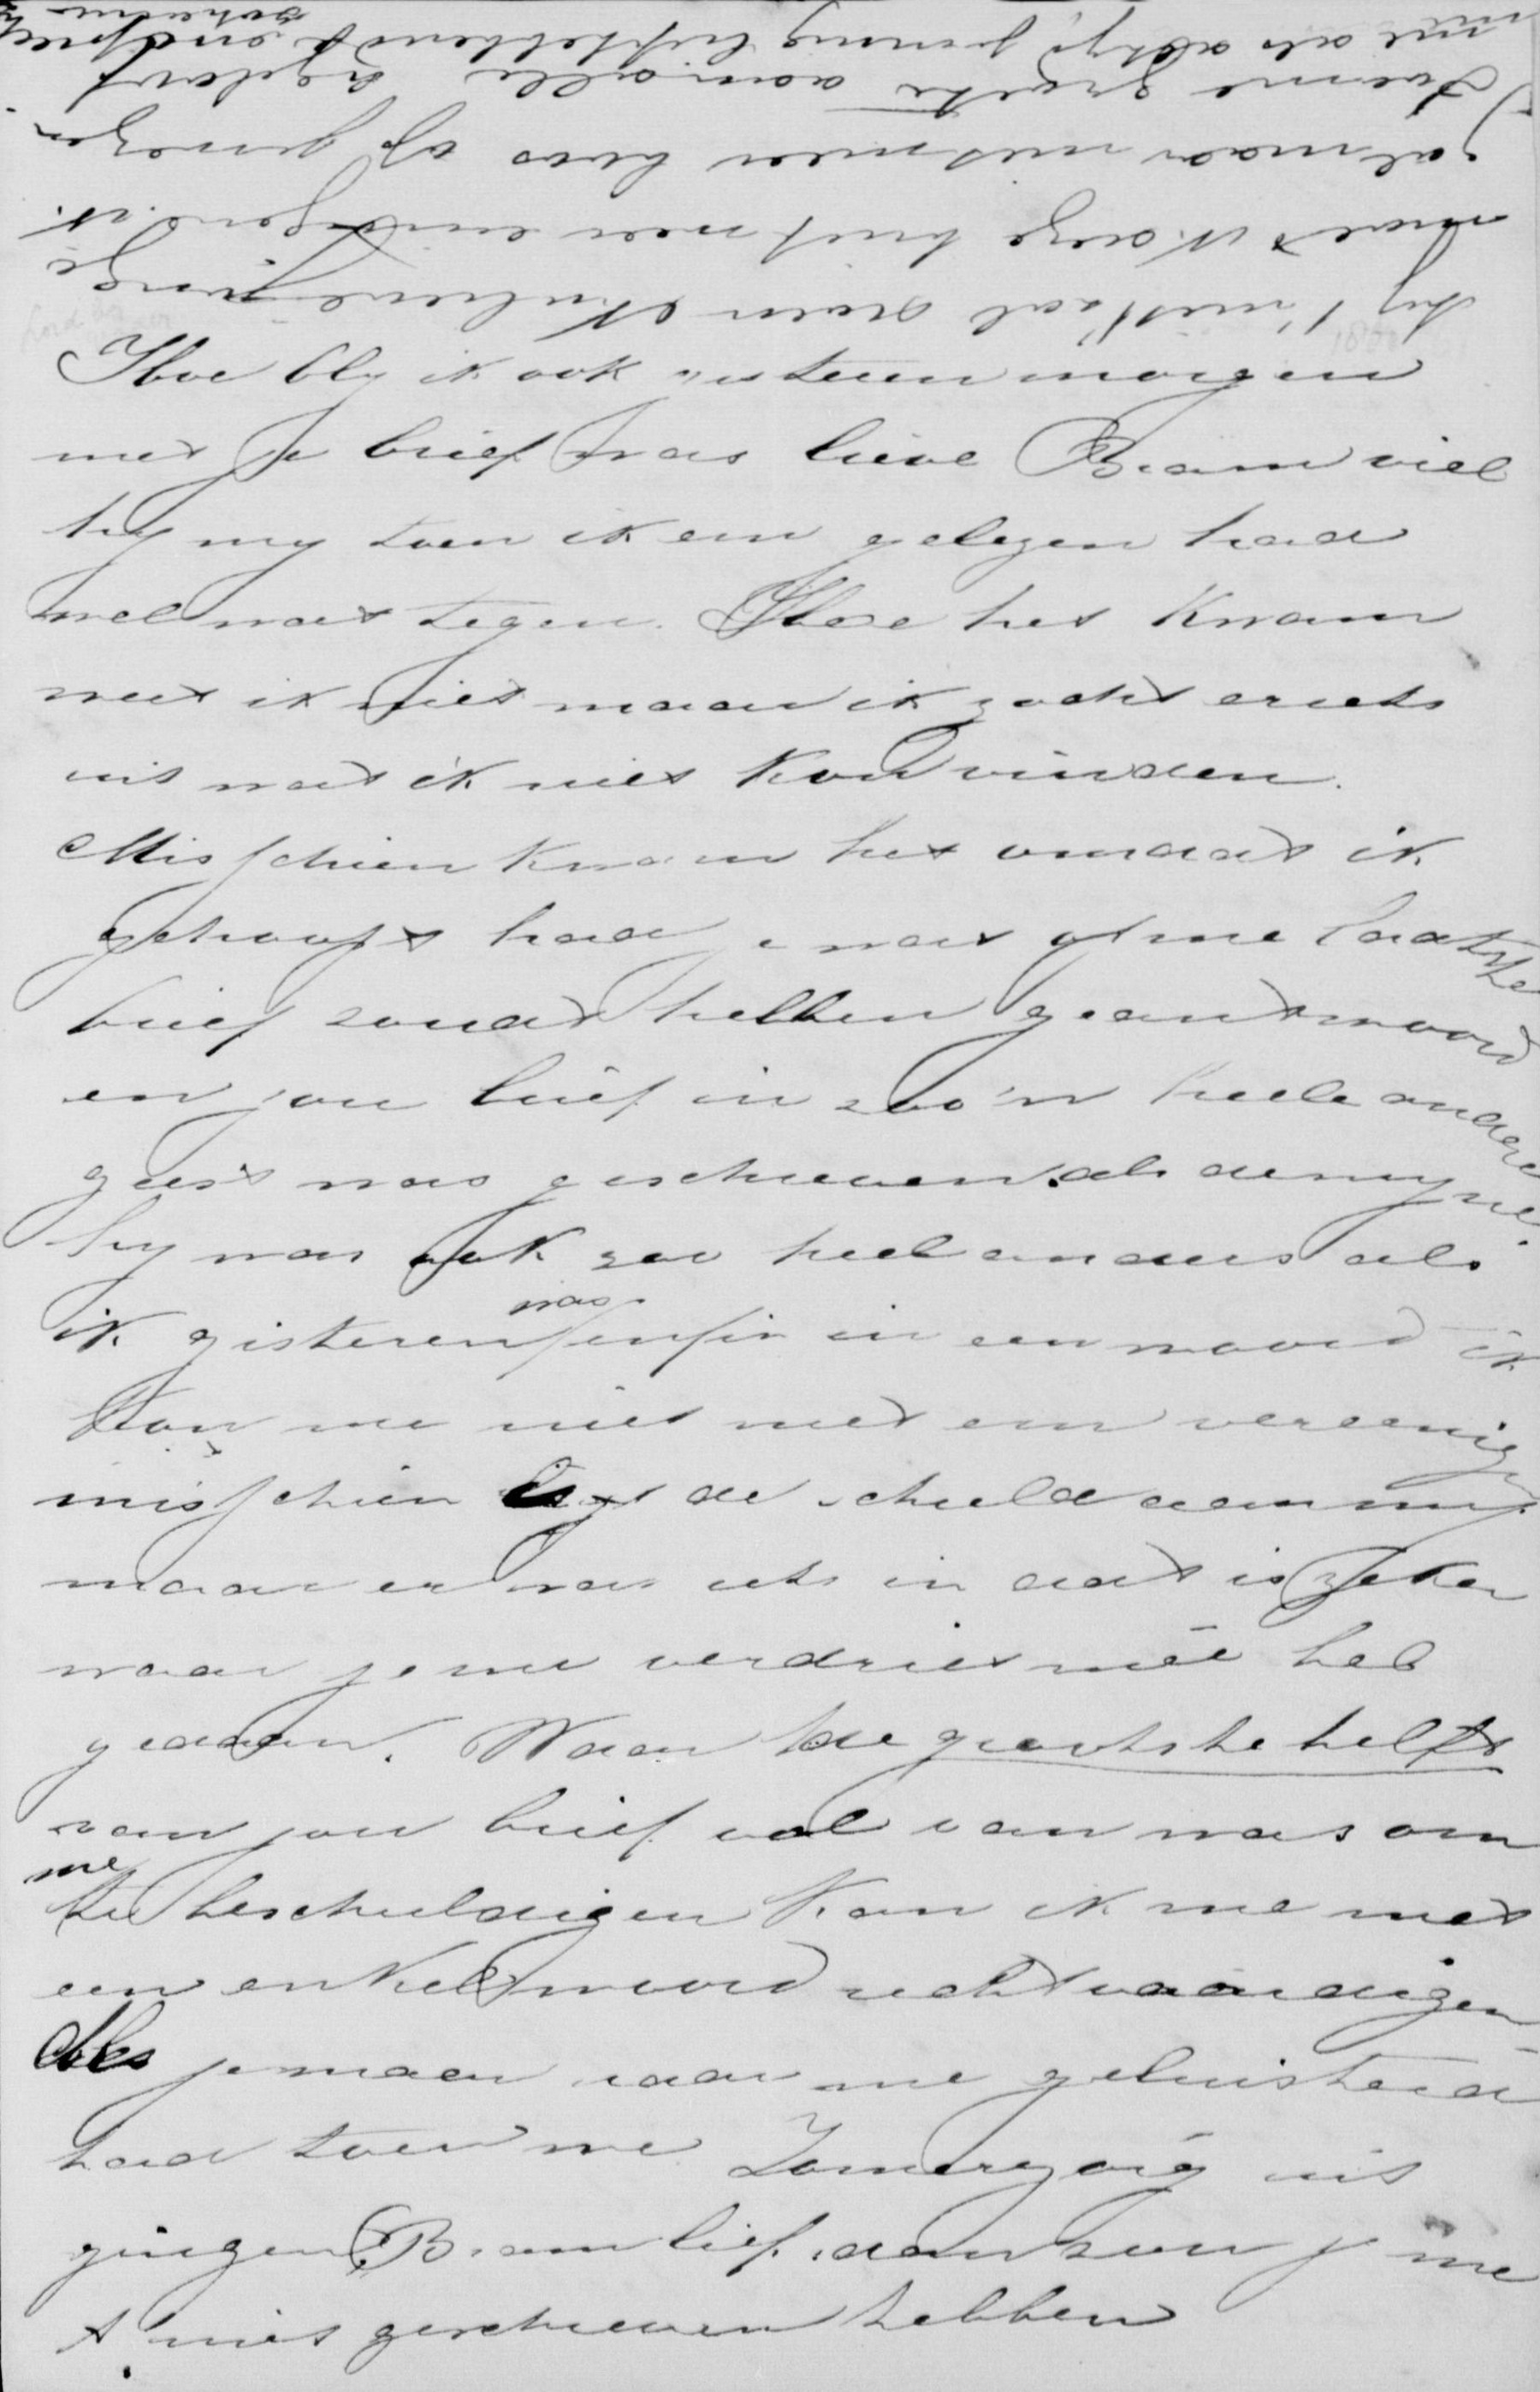 Hoe bly ik ook gisteren morgen
met je brief was lieve Bram viel
hy my toen ik em gelezen had
wel wat tegen. Hoe het kwam
weet ik niet maar ik zocht er iets
uit wat ik niet kon vinden.
Misschien kwam het omdat ik
gehoopt had je wat op me laatste
brief zoudt hebben geantwoord
en jou brief in zoo'n heele andere
geest was geschreven als de myne
hy was ook zoo heel anders als
ik gisteren was enfin in een woord ik
kon me niet met em vereenigen
misschien ligt de schuld aan my
maar er was iets in dat is zeker
waar je me verdriet meê heb
gedaan. Waar de grootste helft
van jou brief vol van was om
me te beschuldigen kan ik me met
een enkel woord rechtvaardigen
Als je maar naar me geluisterd
had toen we Zomerzorg uit
gingen Bram lief dan zou je me
't niet geschreven hebben
hy 't niet zal
want
zal maar niet meer boos op je wezen
groete aan alle